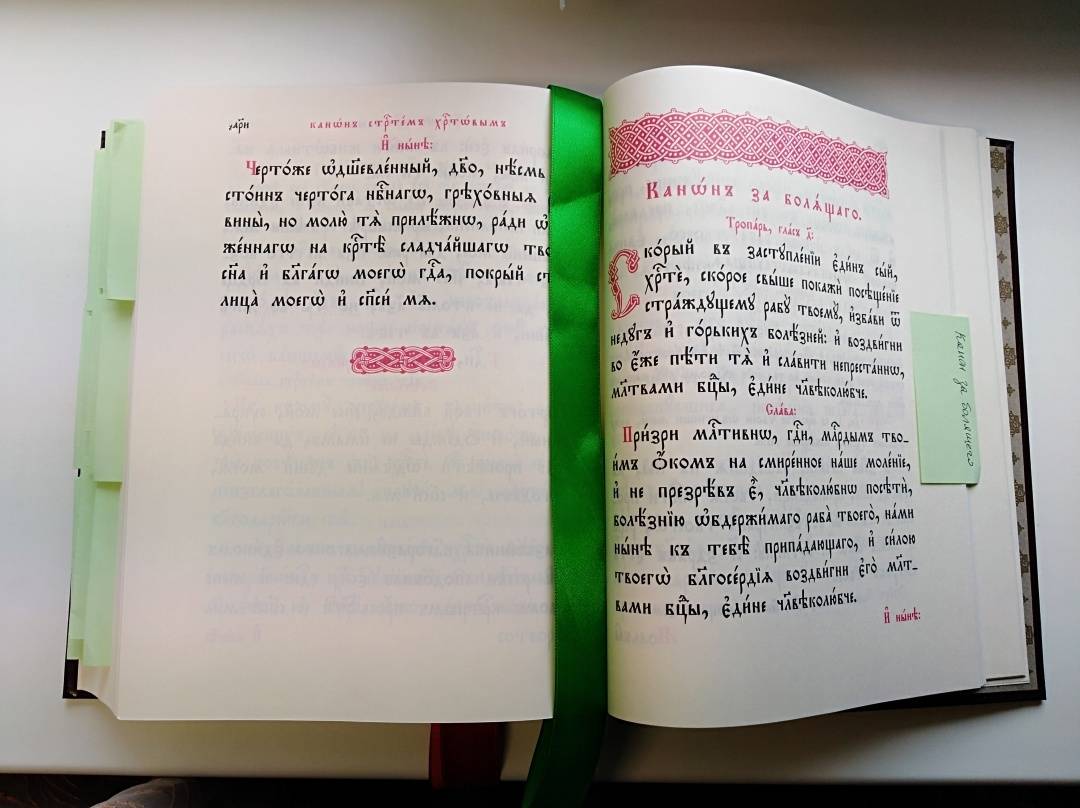 ҂арн҃и
канѡ́нъ стрⷭ҇те́мъ хрⷭ҇тѡ́вымъ
И҆ ны́нѣ:
Черто́же ѡ҆дш҃евле́нный, дв҃о, нѣ́смь
сто́инъ черто́га нбⷭ҇нагѡ, грѣхо́вныѧ
вины̀, но молю́ тѧ прилѣ́жнѡ, ра́ди
же́ннагѡ на крⷭ҇тѣ̀ сладча́йшагѡ тво
сн҃а и҆ бл҃га́гѡ моегѡ̀ гдⷭ҇а, покры́й
лица̀ моегѡ̀ и҆ сп҃си́ мѧ.
Канѡ́нъ за болѧ́щаго.
Тропа́рь, гла́съ д҃:
Ско́рый въ застꙋпле́нїи є҆ди́нъ сы́й,
хрⷭ҇тѐ, ско́рое свы́ше покажѝ посѣще́нїе
стра́ждꙋщемꙋ рабꙋ̀ твоемꙋ̀, и҆зба́ви ѿ
недꙋ́гъ и҆ го́рькихъ болѣ́зней: и҆ воздви́гни
во є҆́же пѣ́ти тѧ̀ и҆ сла́вити непреста́ннѡ,
мл҃твами бцⷣы, є҆ди́не чл҃вѣколю́бче.
Сла́ва:
При́зри млⷭ҇тивнѡ, гдⷭ҇и, млⷭ҇рдымъ тво-
и́мъ ѻ҆́комъ на смире́нное на́ше моле́нїе,
и҆ не презрѣ́въ є҆̀, чл҃вѣколю́бнѡ посѣтѝ,
болѣ́знїю ѡ҆бдержи́маго раба̀ твоего̀, на́ми
ны́нѣ къ тебѣ̀ припа́дающаго, и҆ си́лою
твоегѡ̀ бл҃госе́рдїѧ воздви́гни є҆го̀ мл҃т-
вами бцⷣы, є҆ди́не чл҃вѣколю́бче.
И҆ ны́нѣ:
Канон за болящего